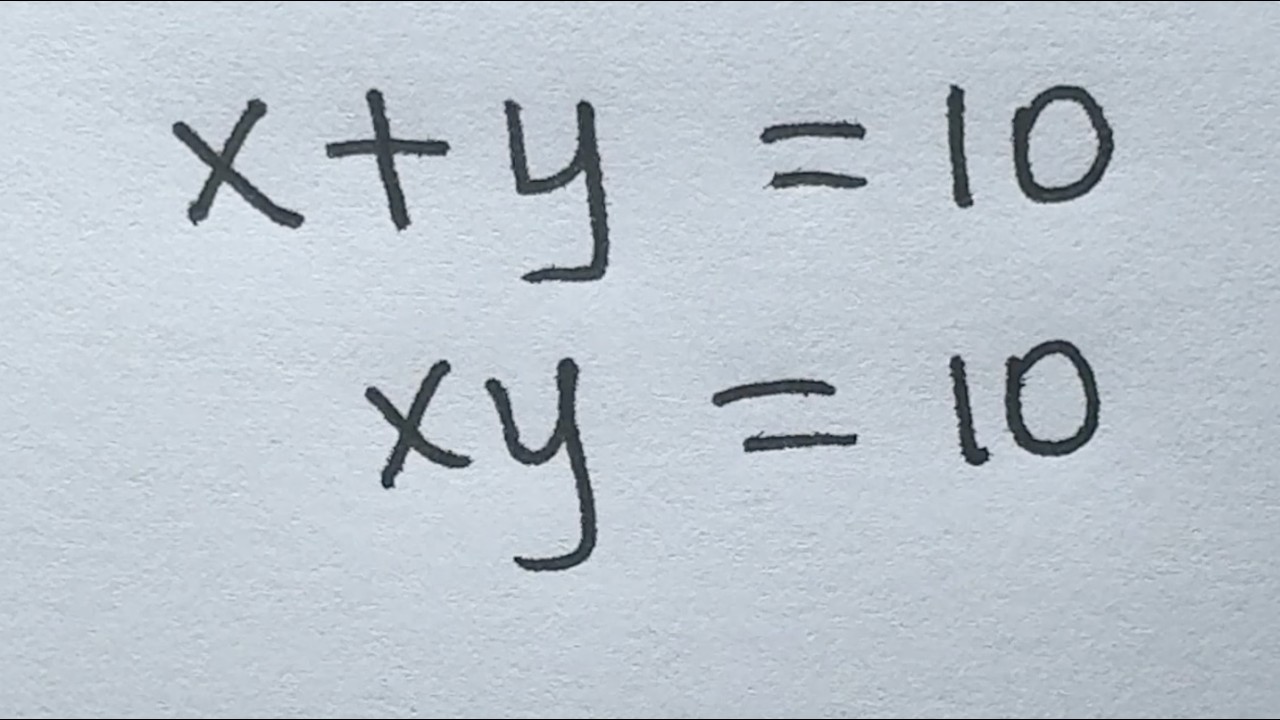 x+y = 10
xy = 10